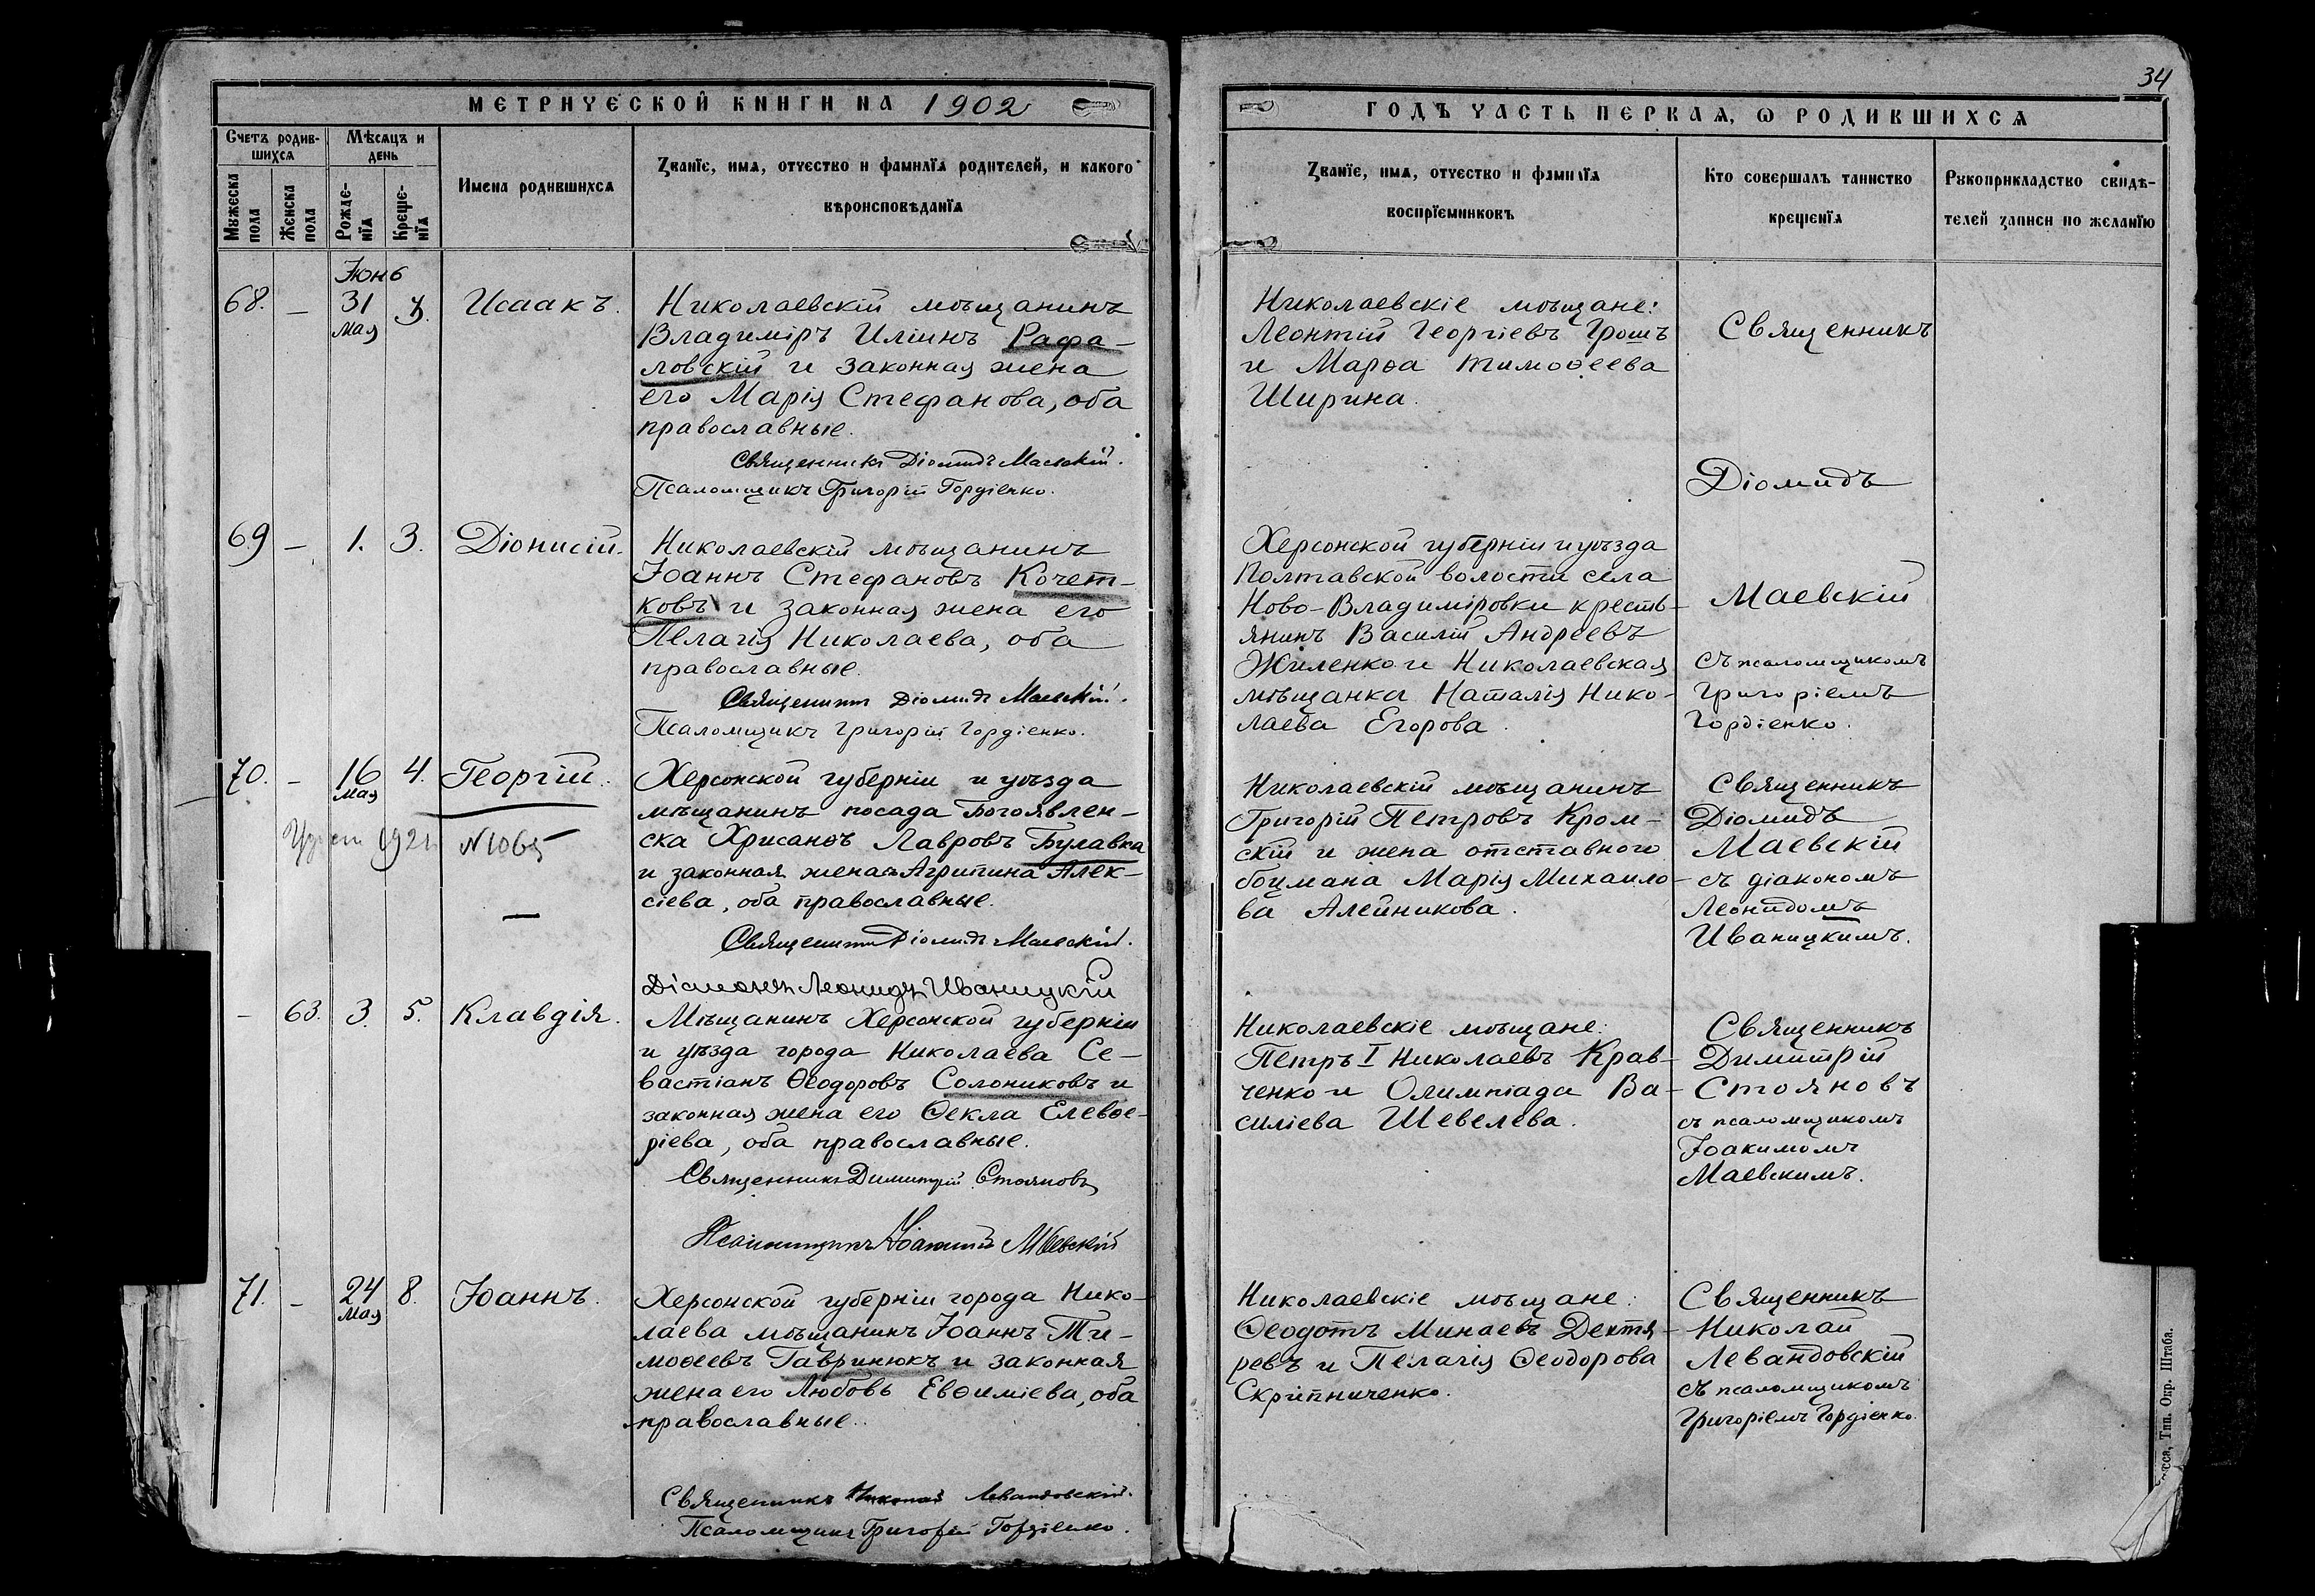 34
МЕТРИЧЕСКОЙ КНИГИ НА 1902
ГОДЪ ЧАСТЬ ПЕРВАЯ, Ѡ РОДИВШИХСЯ
Счетъ родив-
шихся
Мѣсяцъ и
день
Мужеска
пола
Женска
пола
Рожде-
нїя
Креще-
нїя
Имена родившихся
Званїе, имя, отчество и фамилїя родителей, и какого
вѣроисповѣданїя
Званїе, имя, отчество и фамилїя
воспрїемниковъ
Кто совершалъ таинство
крещенїя
Рукоприкладство свидѣ-
телей записи по желанїю
Іюнь
68. – 31 мая 3. Исаакъ.
Николаевскій мѣщанинъ
Владиміръ Иліинъ Рафа-
ловскій и законная жена
его Марія Стефанова, оба
православные.
Священникъ Діомидъ Маевскій.
Псаломщикъ Григорій Гордіенко.
Николаевскіе мѣщане:
Леонтій Георгіевъ Грошъ
и Марѳа Тимоѳеева
Ширина.
Священникъ
Діомидъ
Маевскій
съ псаломщикомъ
Григоріемъ
Гордіенко.
69 – 1. 3. Діонисій.
Николаевскій мѣщанинъ
Іоаннъ Стефановъ Кочет-
ковъ и законная жена его
Пелагія Николаева, оба
православные.
Священникъ Діомидъ Маевскій.
Псаломщикъ Григорій Гордіенко.
Херсонской губерніи и уѣзда
Полтавской волости села
Ново-Владиміровки кресть-
янинъ Василій Андреевъ
Жиленко и Николаевская
мѣщанка Наталія Нико-
лаева Егорова.
70. – 16 мая 4. Георгій.
1921 N 1065
Херсонской губерніи и уѣзда
мѣщанинъ посада Богоявлен-
ска Хрисанѳъ Лавровъ Булавка
и законная жена Агрипина Алек-
сіева, оба православные.
Священникъ Діомидъ Маевскій.
Діаконъ Леонидъ Иваницкій
Николаевскій мѣщанинъ
Григорій Петровъ Кром-
скій и жена отставного
боцмана Марія Михаило-
ва Алейникова.
Священникъ
Діомидъ
Маевскій
съ діакономъ
Леонидомъ
Иваницкимъ.
– 63. 3. 5. Клавдія.
Мѣщанинъ Херсонской губерніи
и уѣзда города Николаева Се-
вастіанъ Ѳеодоровъ Солониковъ и
законная жена его Ѳекла Елевѳе-
ріева, оба православные.
Священникъ Димитрій Стояновъ
Псаломщикъ Іоакимъ Маевскій
Николаевскіе мѣщане:
Петръ I Николаевъ Крав-
ченко и Олимпіада Ва-
силіева Шевелева.
Священникъ
Димитрій
Стояновъ
съ псаломщикомъ
Іоакимомъ
Маевскимъ.
71. – 24 мая 8. Іоаннъ.
Херсонской губерніи города Нико-
лаева мѣщанинъ Іоаннъ Ти-
моѳеевъ Гавринюкъ и законная
жена его Любовь Евѳиміева, оба
православные.
Священникъ Николай Левандовскій.
Псаломщикъ Григорій Гордіенко.
Николаевскіе мѣщане:
Ѳеодотъ Минаевъ Дехтя-
ревъ и Пелагія Ѳеодорова
Скрипниченко.
Священникъ
Николай
Левандовскій
съ псаломщикомъ
Григоріемъ Гордіенко.
Тип. Окр. Штаба.